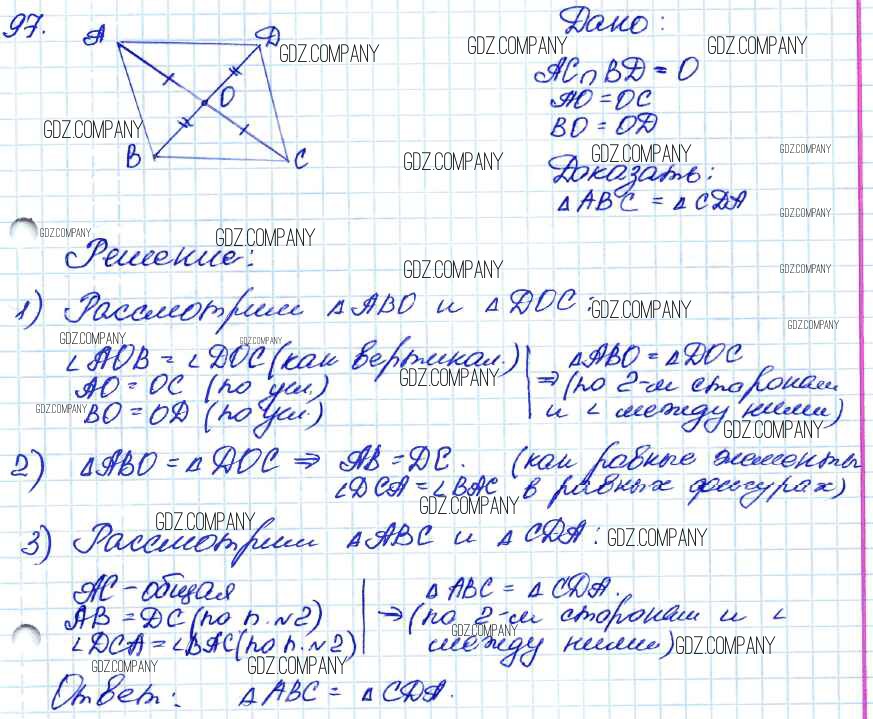 97.
A
D
O
B
C
GDZ.COMPANY
GDZ.COMPANY
Дано:
GDZ.COMPANY
GDZ.COMPANY
AC∩BD = O
AO = OC
BO = OD
GDZ.COMPANY
GDZ.COMPANY
GDZ.COMPANY
Доказать:
△ABC = △CDA
GDZ.COMPANY
GDZ.COMPANY
GDZ.COMPANY
Решение:
GDZ.COMPANY
GDZ.COMPANY
1) Рассмотрим △ABO и △DOC:
GDZ.COMPANY
GDZ.COMPANY
GDZ.COMPANY
GDZ.COMPANY
∠AOB = ∠DOC (как вертикал.)
AO = OC (по усл.)
BO = OD (по усл.)
△ABO = △DOC
⇒ (по 2-м сторонам
и ∠ между ними)
GDZ.COMPANY
GDZ.COMPANY
GDZ.COMPANY
2) △ABO = △DOC ⇒ AB = DC. (как равные элементы
∠DCA = ∠BAC в равных фигурах)
GDZ.COMPANY
GDZ.COMPANY
3) Рассмотрим △ABC и △CDA:
GDZ.COMPANY
AC - общая
AB = DC (по п.№2)
∠DCA = ∠BAC (по п.№2)
△ABC = △CDA.
⇒ (по 2-м сторонам и ∠
между ними)
GDZ.COMPANY
GDZ.COMPANY
GDZ.COMPANY
GDZ.COMPANY
Ответ: △ABC = △CDA.